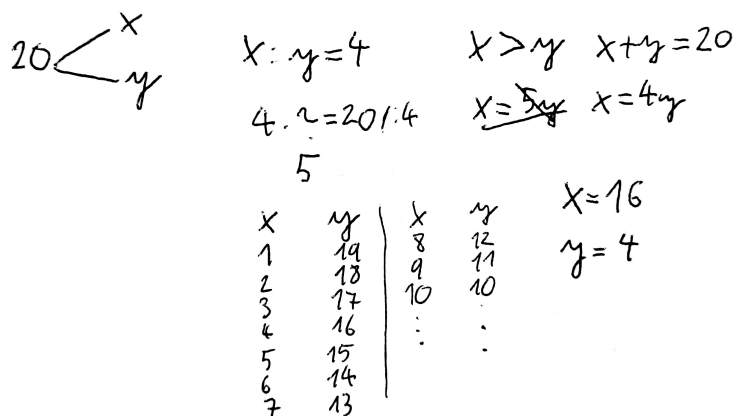 20 x
y
x : y = 4
4 · ? = 20 /:4
5
x > y x + y = 20
x = 5y x = 4y
x y | x y
1 19 | 8 12
2 18 | 9 11
3 17 | 10 10
4 16 | ⋮ ⋮
5 15
6 14
7 13
x = 16
y = 4